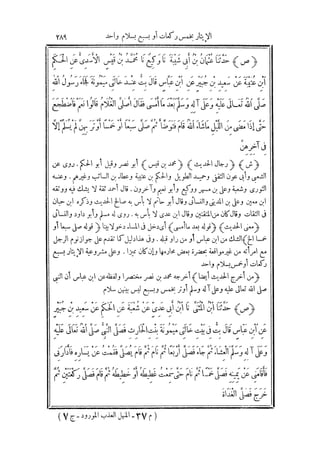 الإيتار بخمس ركعات أو بسبع بسلام واحد ٢٨٩
﴿ص﴾ حَدَّثَنَا عُثْمَانُ بْنُ أَبِي شَيْبَةَ نَا وَكِيعٌ نَا مُحَمَّدُ بْنُ قَيْسٍ الْأَسَدِيُّ عَنِ الْحَكَمِ
ابْنِ عُتَيْبَةَ عَنْ سَعِيدِ بْنِ جُبَيْرٍ عَنِ ابْنِ عَبَّاسٍ قَالَ بِتُّ عِنْدَ خَالَتِي مَيْمُونَةَ فَجَاءَ رَسُولُ اللهِ
صَلَّى اللهُ تَعَالَى عَلَيْهِ وَعَلَى آلِهِ وَسَلَّمَ بَعْدَ مَا أَمْسَى فَقَالَ أَصَلَّى الْغُلَامُ قَالُوا نَعَمْ فَاضْطَجَعَ
حَتَّى إِذَا مَضَى مِنَ اللَّيْلِ مَا شَاءَ اللهُ قَامَ فَتَوَضَّأَ ثُمَّ صَلَّى سَبْعًا أَوْ خَمْسًا أَوْتَرَ بِهِنَّ لَمْ يُسَلِّمْ إِلَّا
فِي آخِرِهِنَّ
﴿ش﴾ ﴿رجال الحديث﴾ ﴿محمد بن قيس﴾ أبو نصر وقيل أبو الحكم. روى عن
الشعبي وأبي عون الثقفي وحميد الطويل والحكم بن عتيبة وعطاء بن السائب وغيرهم. وعنه
الثوري وشعبة وعلي بن مسهر ووكيع وأبو نعيم وآخرون. قال أحمد ثقة لا يشك فيه ووثقه
ابن معين وعلي بن المديني والنسائي وقال أبو حاتم لا بأس به صالح الحديث وذكره ابن حبان
في الثقات وقال كان من المتقنين وقال ابن عدى لا بأس به. روى له مسلم وأبو داود والنسائي
﴿معنى الحديث﴾ ﴿قوله بعد ما أمسى﴾ أي دخل في المساء دخولا بينا ﴿قوله صلى سبعا أو
خمسا الخ﴾ الشك من ابن عباس أو من راو قبله. وفي هذا دليل كما تقدم على جواز نوم الرجل
مع امرأته من غير مواقعة بحضرة بعض محارمها وإن كان مميزا. وعلى مشروعية الإيتار بسبع
ركعات أو بخمس بسلام واحد
﴿من أخرج الحديث أيضا﴾ أخرجه محمد بن نصر مختصرا ولفظه عن ابن عباس أن النبي
صلى الله تعالى عليه وعلى آله وسلم أوتر بخمس وبسبع ليس بينهن سلام
﴿ص﴾ حَدَّثَنَا ابْنُ الْمُثَنَّى نَا ابْنُ أَبِي عَدِيٍّ عَنْ شُعْبَةَ عَنِ الْحَكَمِ عَنْ سَعِيدِ بْنِ جُبَيْرٍ
عَنِ ابْنِ عَبَّاسٍ قَالَ بِتُّ فِي بَيْتِ خَالَتِي مَيْمُونَةَ بِنْتِ الْحَارِثِ فَصَلَّى النَّبِيُّ صَلَّى اللهُ تَعَالَى عَلَيْهِ
وَعَلَى آلِهِ وَسَلَّمَ الْعِشَاءَ ثُمَّ جَاءَ فَصَلَّى أَرْبَعًا ثُمَّ نَامَ ثُمَّ قَامَ يُصَلِّي فَقُمْتُ عَنْ يَسَارِهِ فَأَدَارَنِي
فَأَقَامَنِي عَنْ يَمِينِهِ فَصَلَّى خَمْسًا ثُمَّ نَامَ حَتَّى سَمِعْتُ غَطِيطَهُ أَوْ خَطِيطَهُ ثُمَّ قَامَ فَصَلَّى رَكْعَتَيْنِ ثُمَّ
خَرَجَ فَصَلَّى الْغَدَاةَ
(م ٣٧ - المنهل العذب المورود - ج ٧)